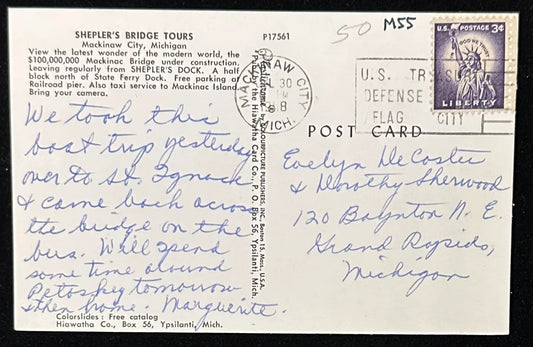 SHEPLER'S BRIDGE TOURS
Mackinaw City, Michigan
View the latest wonder of the modern world, the
$100,000,000 Mackinac Bridge under construction.
Leaving regularly from SHEPLER'S DOCK. A half
block north of State Ferry Dock. Free parking at
Railroad pier. Also taxi service to Mackinac Island.
Bring your camera.
We took this
boat trip yesterday
over to St. Ignace
& came back across
the bridge on the
bus. Will spend
some time around
Petoskey tomorrow
& then home. Marguerite.
Colorslides: Free catalog
Hiawatha Co., Box 56, Ypsilanti, Mich.
P17561
Pub. by the Hiawatha Card Co., P. O. Box 56, Ypsilanti, Mich.
COLOURPICTURE PUBLISHERS, INC., Boston 15, Mass., U.S.A.
50 M55
MACKINAW CITY
30
MICH.
U.S.
DEFENSE
FLAG CITY
U.S. POSTAGE 3¢
IN GOD WE TRUST
LIBERTY
POST CARD
Evelyn DeCoster
& Dorothy Sherwood
120 Baynton N. E.
Grand Rapids,
Michigan